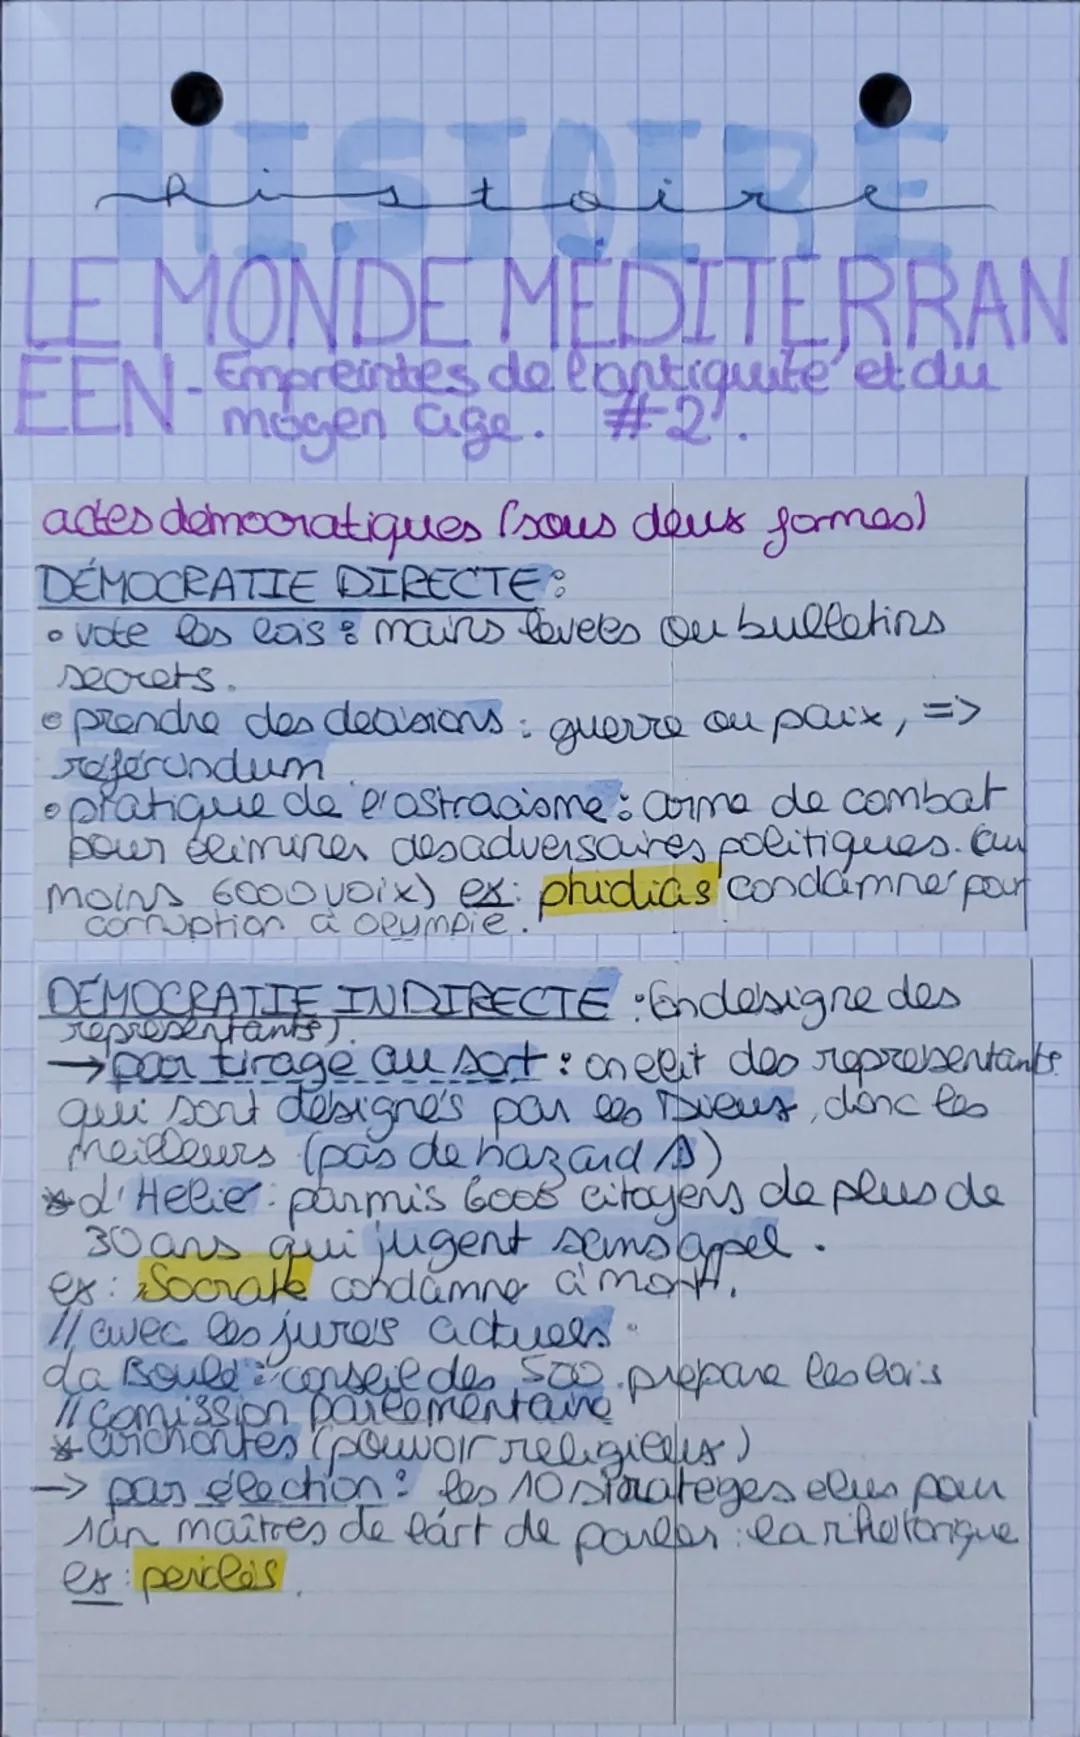 HISTOIRE
histoire
LE MONDE MÉDITERRAN
EEN - Empreintes de l'antiquité et du
moyen age. #2.
actes démocratiques (sous deux formes)
DÉMOCRATIE DIRECTE :
• vote les lois : mains levées ou bulletins
secrets.
• prendre des décisions : guerre ou paix, =>
référundum
• pratique de l'ostracisme : arme de combat
pour éliminer des adversaires politiques. (au
moins 6000 voix) ex : phidias condamné pour
corruption à olympie.
DÉMOCRATIE INDIRECTE : (on désigne des
représentants).
→ par tirage au sort : on élit des représentants
qui sont désignés par les Dieux, donc les
meilleurs (pas de hazard)
* L'Helié : parmis 6000 citoyens de plus de
30 ans qui jugent sans appel.
ex : Socrate condamné à mort.
// avec les jurés actuels.
La Boulé : conseil des 500. prépare les lois
// comission parlementaire
* archontes (pouvoir religieux)
→ par élection : les 10 stratèges élus pour
1 an maîtres de l'art de parler : la rhétorique
ex : periclès.